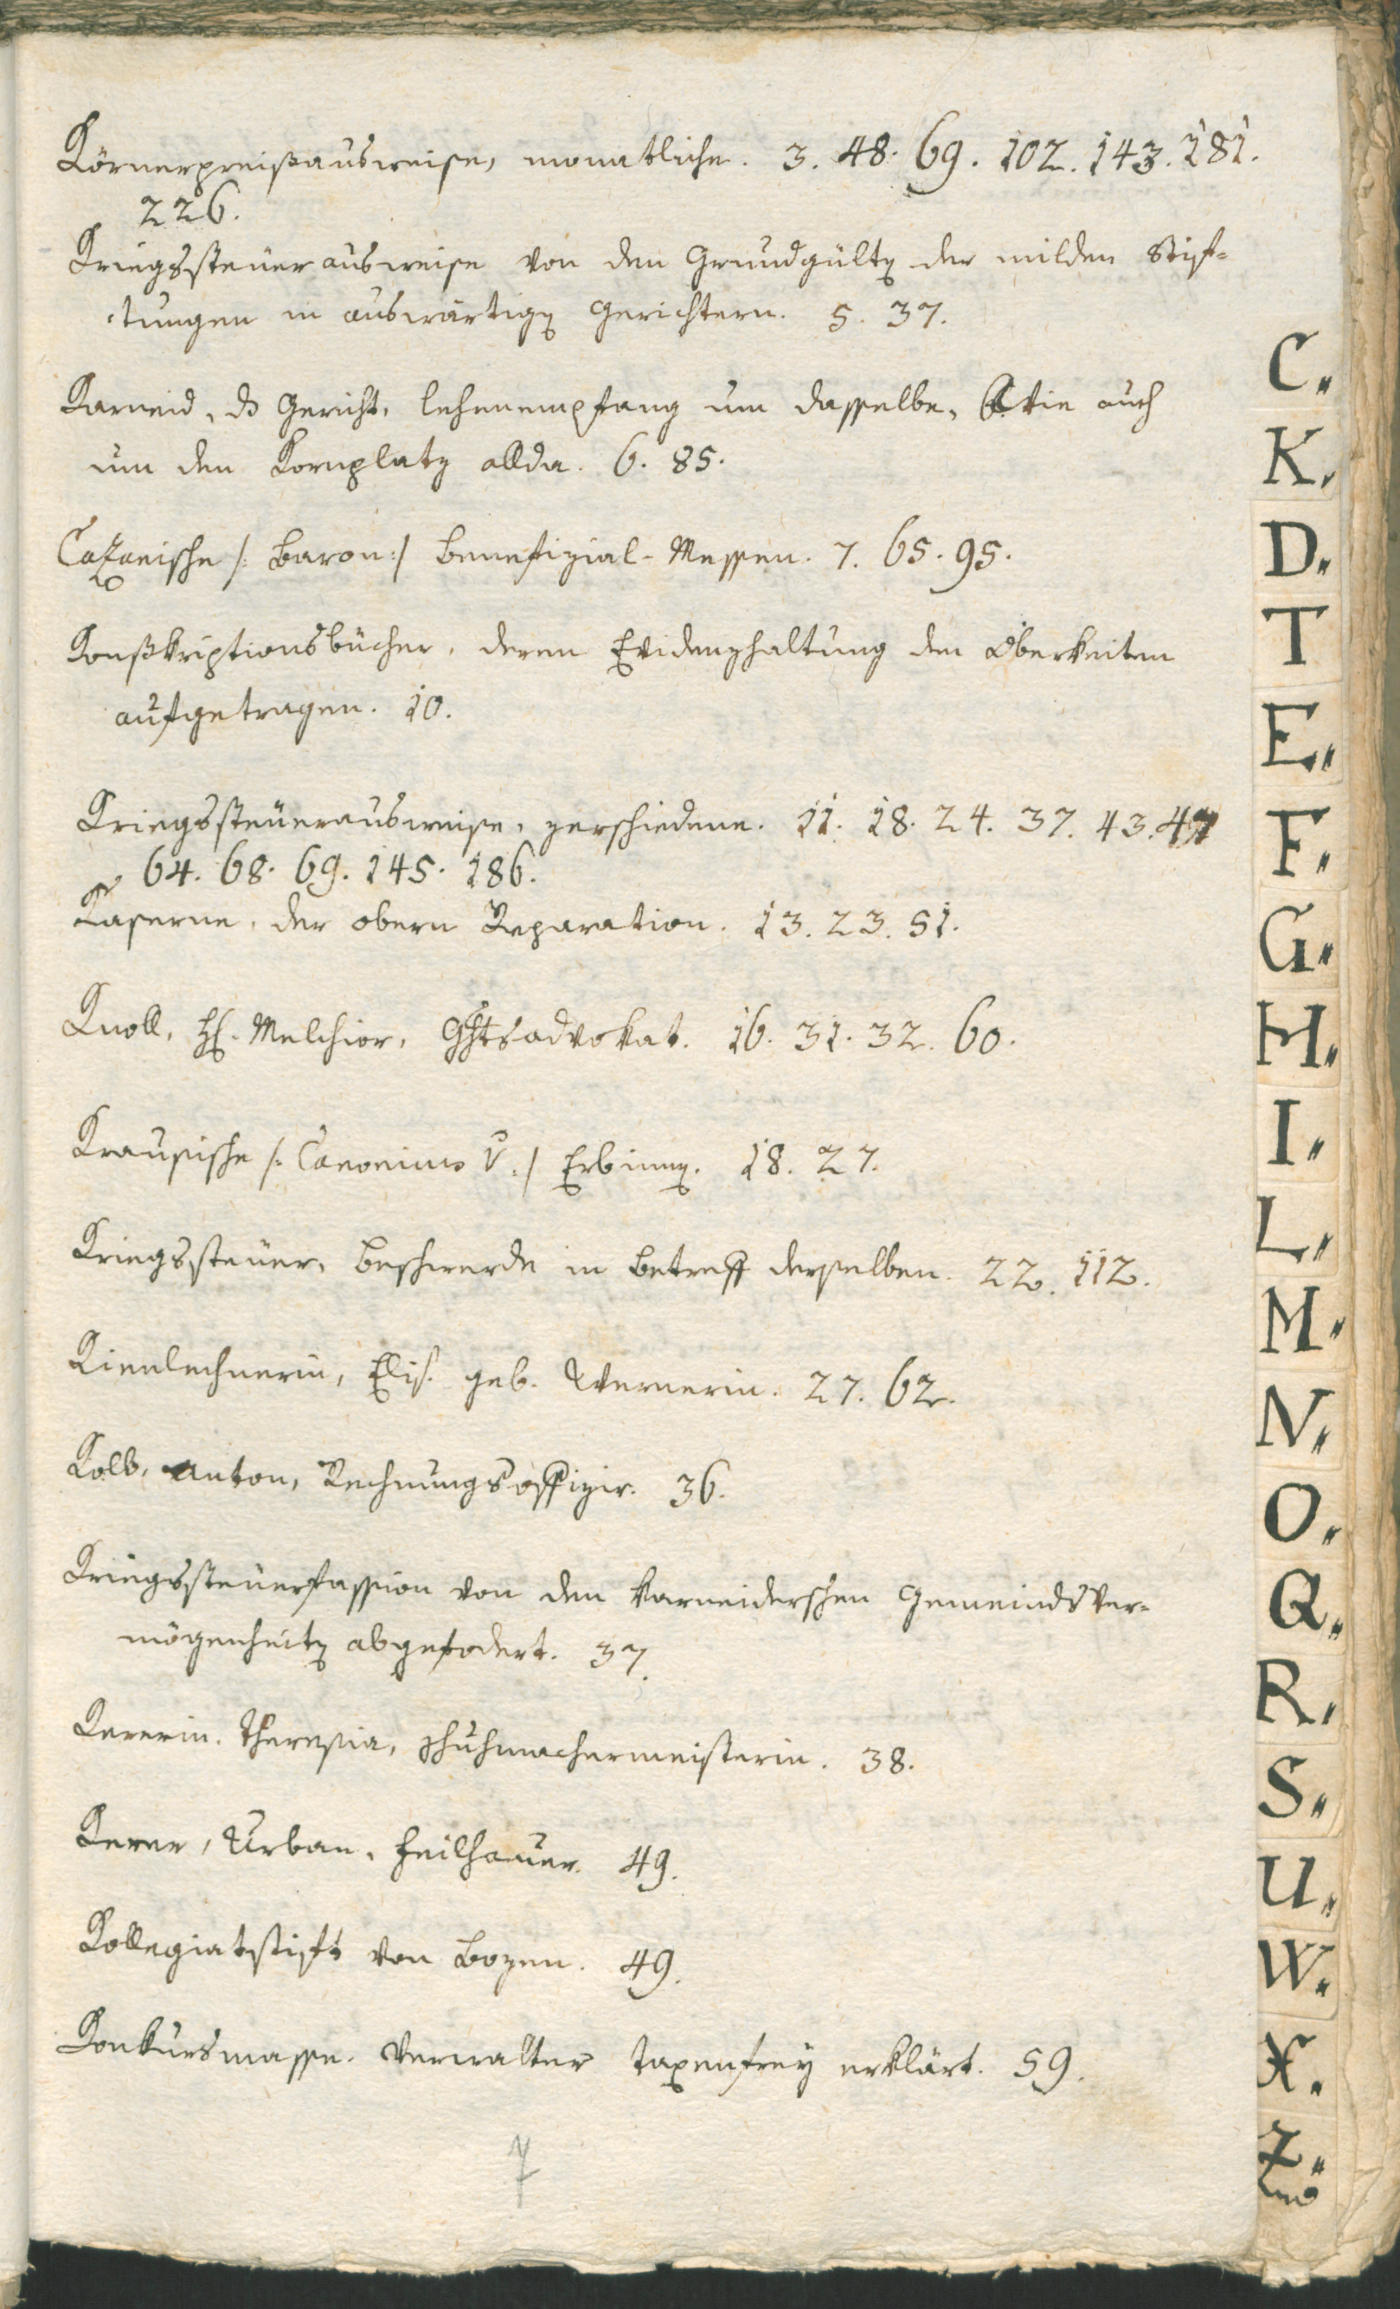 Körnerpreißausweise, monatliche. 3. 48. 69. 102. 143. 181.
226.
Kriegssteüerausweise von den Grundgültn der milden Stif-
tungen in auswärtign Gerichtern. 5. 37.
Karneid, ds Gericht, Lehenempfang um dasselbe, wie auch
um den Kornplatz allda. 6. 85.
Cazanische /: Baron :/ Benefizial-Messen. 7. 65. 95.
Konßkriptionsbücher, deren Evidenzhaltung den Oberkeiten
aufgetragen. 10.
Kriegssteüerausweise, zerschiedene. 11. 18. 24. 37. 43. 47
64. 68. 69. 145. 186.
Kaserne, der obern Reparation. 13. 23. 51.
Knoll, H. Melchior, Ghtsadvokat. 16. 31. 32. 60.
Krausische /: Canonicus :/ Erbinnn. 18. 27.
Kriegssteüer, Beschwerde in Betreff derselben. 22. 112.
Kienlechnerin, Elis. geb. Wernerin. 27. 62.
Kolb, Anton, Rechnungsoffizir. 36.
Kriegssteüerfassion von den karneiderschen Gemeindsver-
mögenheitn abgefodert. 37.
Kererin, Theresia, Schuhmachermeisterin. 38.
Kerer, Urban, Feilhauer. 49.
Kollegiatstift von Bozen. 49.
Konkursmasse. Verwalter taxenfreÿ erklärt. 59.
7
C.
K.
D.
T
E.
F.
G.
H.
I.
L.
M.
N.
O.
Q.
R.
S.
U.
W.
X.
Z.